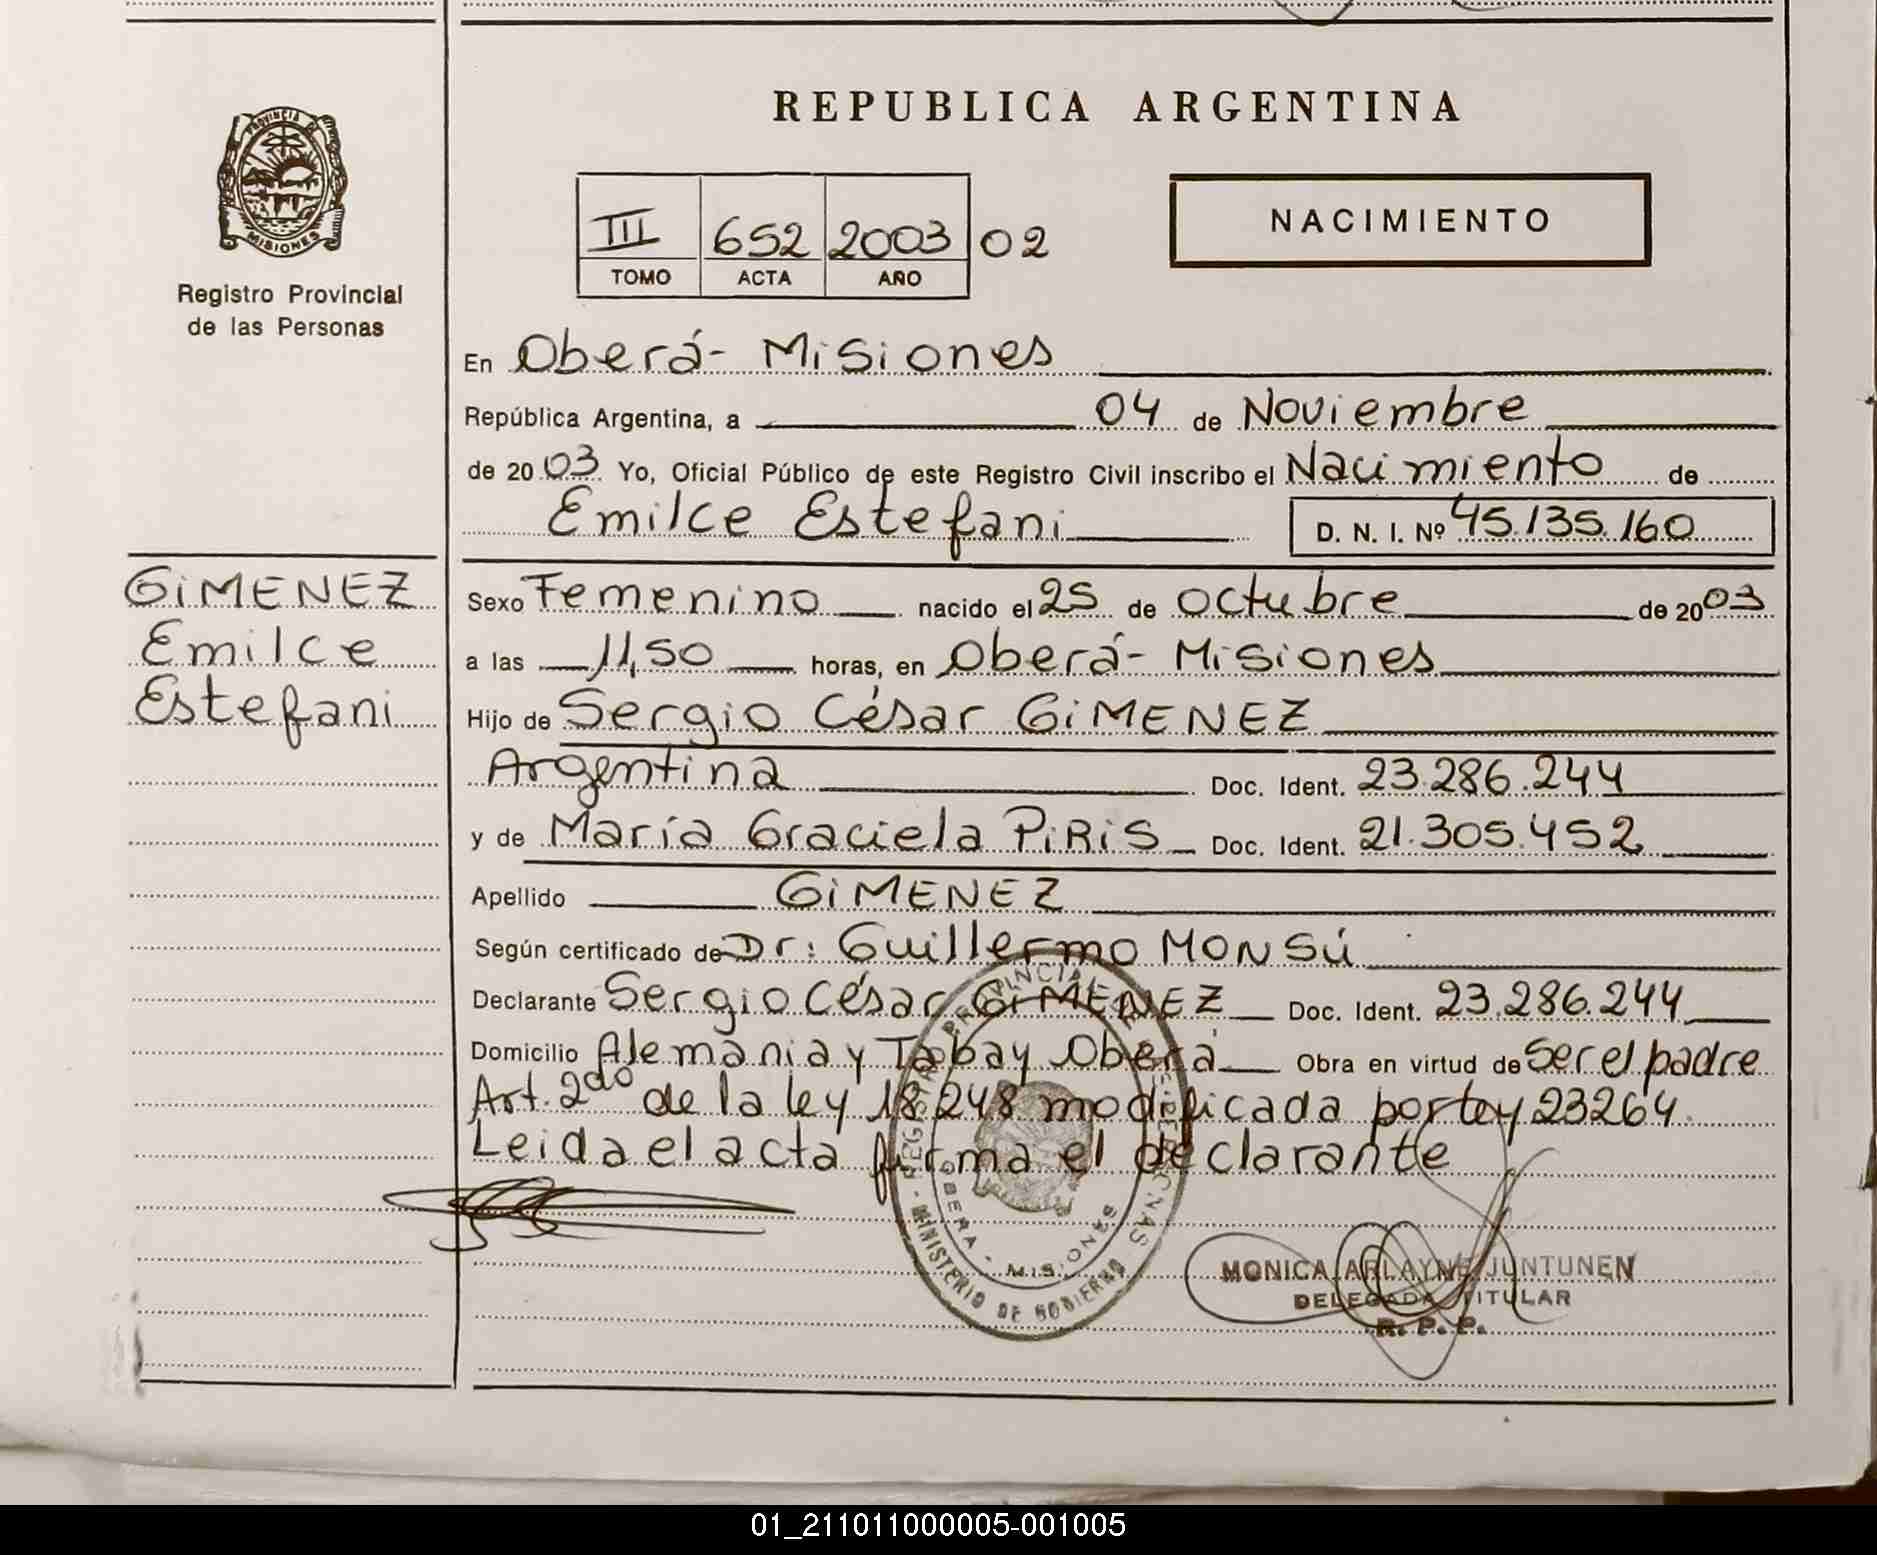 REPUBLICA ARGENTINA
PROVINCIA D
MISIONES
Registro Provincial
de las Personas
III 652 2003 02
TOMO ACTA AÑO
NACIMIENTO
En Oberá- Misiones
República Argentina, a 04 de Noviembre
de 2003 Yo, Oficial Público de este Registro Civil inscribo el Nacimiento de
Emilce Estefani D. N. I. Nº 45.135.160
GiMENEZ
Emilce
Estefani
Sexo Femenino nacido el 25 de octubre de 2003
a las 11,50 horas, en Oberá- Misiones
Hijo de Sergio César GiMENEZ
Argentina Doc. Ident. 23.286.244
y de María Graciela PiRiS Doc. Ident. 21.305.452
Apellido GiMENEZ
Según certificado de Dr: Guillermo MONSÚ
Declarante Sergio César GiMENEZ Doc. Ident. 23.286.244
Domicilio Alemania y Tabay Oberá Obra en virtud de Ser el padre
Art. 2do de la ley 18.248 modificada por ley 23264.
Leida el acta firma el declarante
OBERA - MISIONES
MINISTERIO DE GOBIERNO
MONICA ARLAYNE JUNTUNEN
DELEGADA TITULAR
R. P. P.
01_211011000005-001005